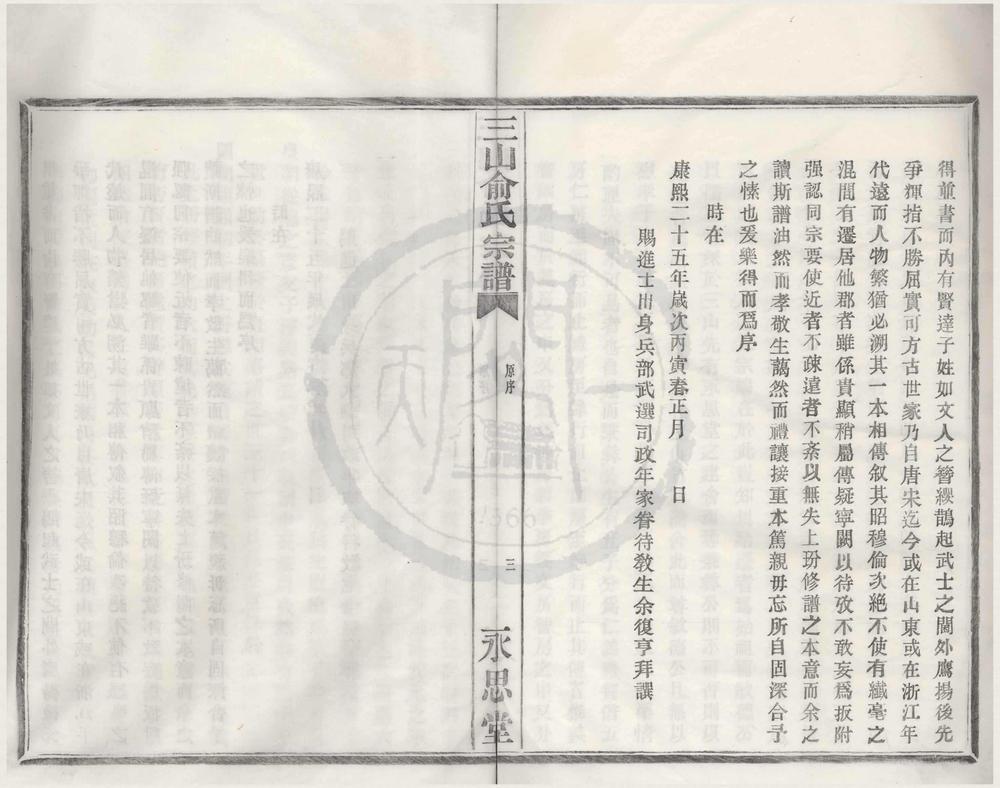 得並書而內有賢達子姓如文人之簪纓鵲起武士之閫外鷹揚後先
爭輝指不勝屈實可方古世家乃自唐宋迄今或在山東或在浙江年
代遠而人物繁猶必溯其一本相傳叙其昭穆倫次絕不使有纖毫之
混間有遷居他郡者雖係貴顯稍屬傳疑寧闕以待攷不敢妄爲扳附
强認同宗要使近者不疎遠者不紊以無失上玢修譜之本意而余之
讀斯譜油然而孝敬生藹然而禮讓接重本篤親毋忘所自固深合予
之愫也爰樂得而爲序
時在
康熙二十五年歲次丙寅春正月 日
賜進士出身兵部武選司政年家眷待敎生余復亨拜譔
三山俞氏宗譜
原序
三
永思堂
1366